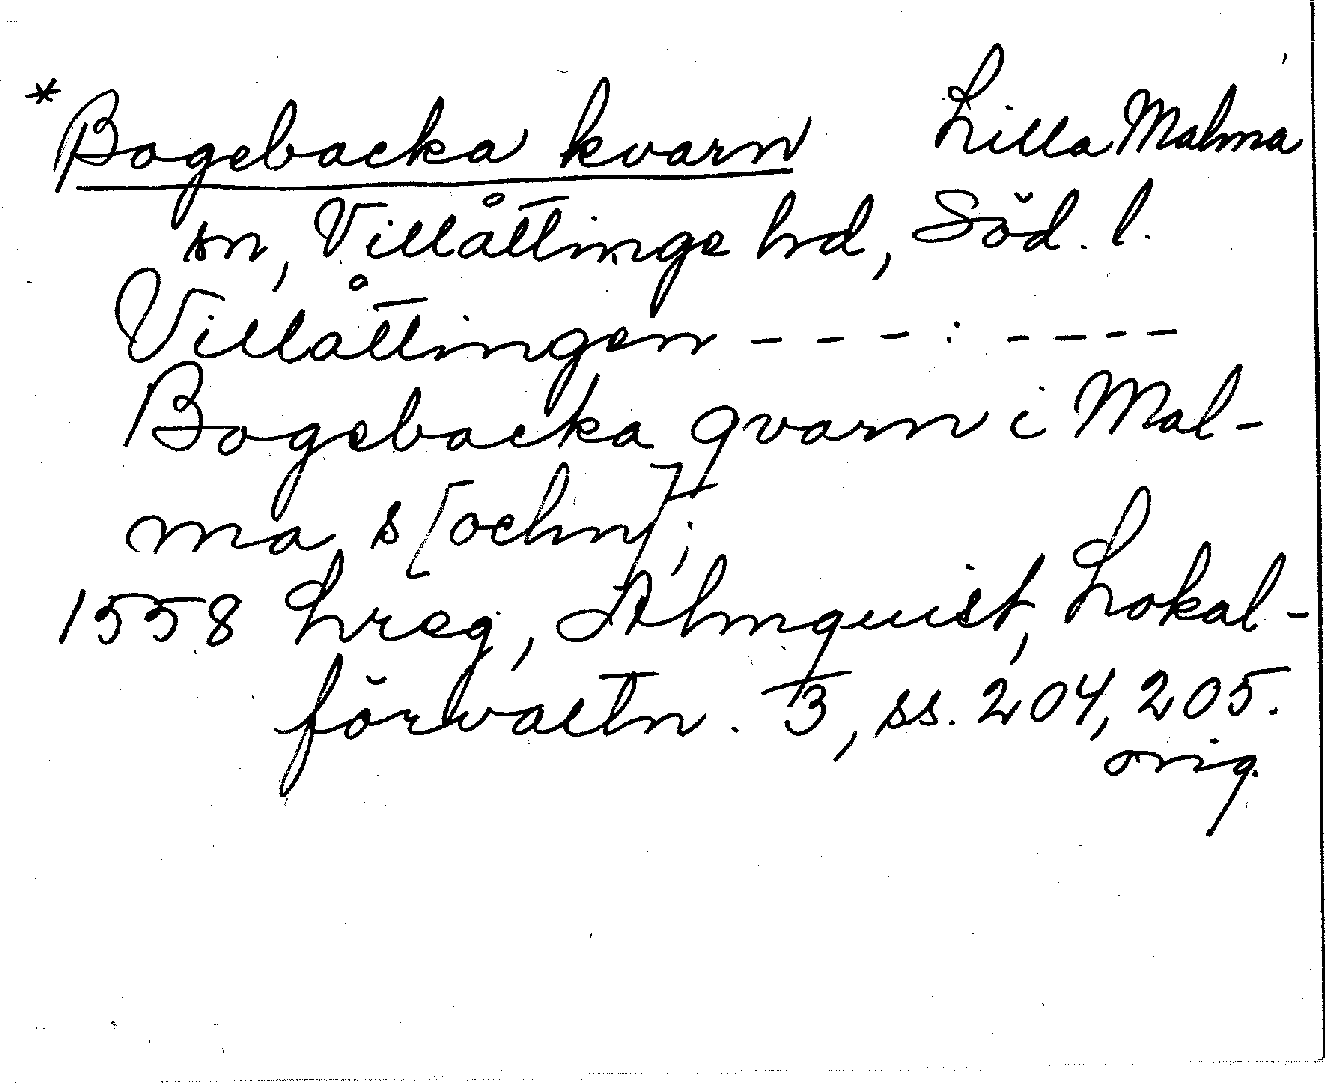 *Bogebacka kvarn Lilla Malma
sn, Villåttinge hd, Söd. l.
Villåttingen - - - : - - - -
Bogebacka qvarn i Mal-
ma s[ochn];
1558 Lreg, Almquist, Lokal-
förvaltn. 3, ss. 204, 205.
orig.